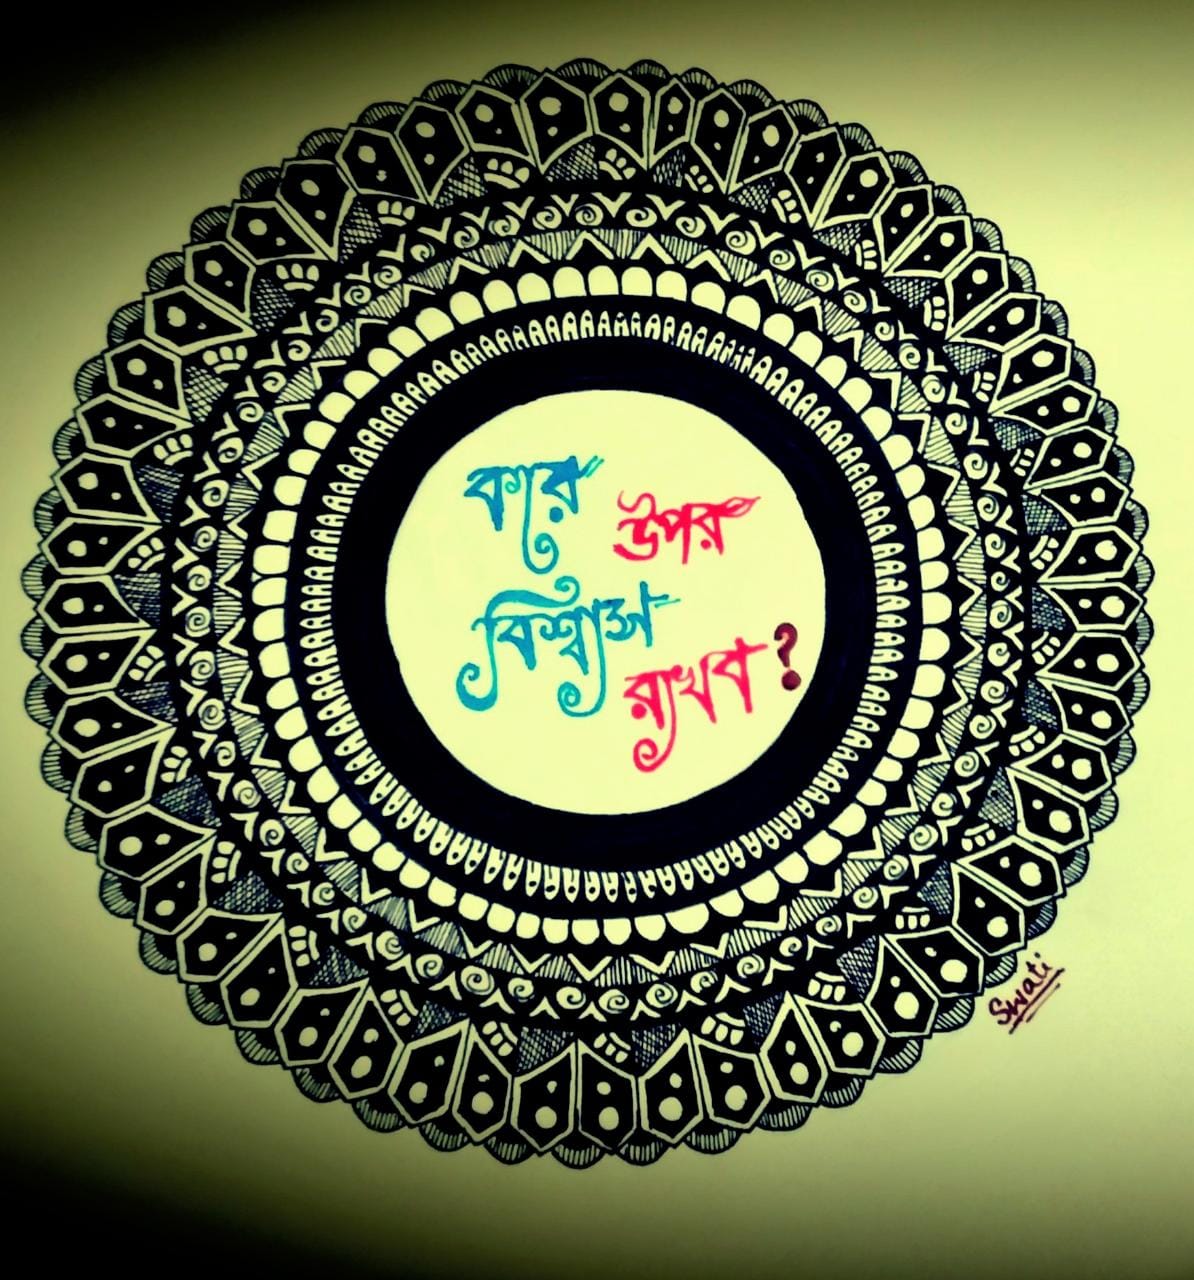 কার উপর
বিশ্বাস রাখব?
Swati